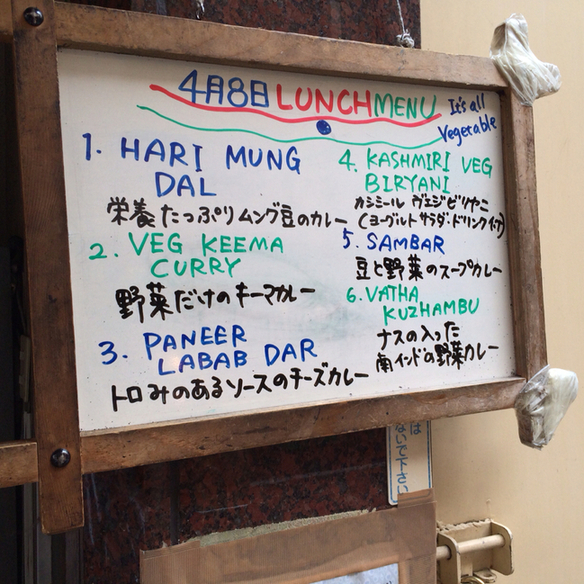 4月8日 LUNCH MENU
It's all
Vegetable
1. HARI MUNG
DAL
栄養たっぷりムング豆のカレー
2. VEG KEEMA
CURRY
野菜だけのキーマカレー
3. PANEER
LABAB DAR
トロみのあるソースのチーズカレー
4. KASHMIRI VEG
BIRYANI
カシミール ヴェジビリヤニ
(ヨーグルト サラダ・ドリンク
5. SAMBAR
豆と野菜のスープカレー
6. VATHA
KUZHAMBU
ナスの入った
南インドの野菜カレー
は
ないで下さい